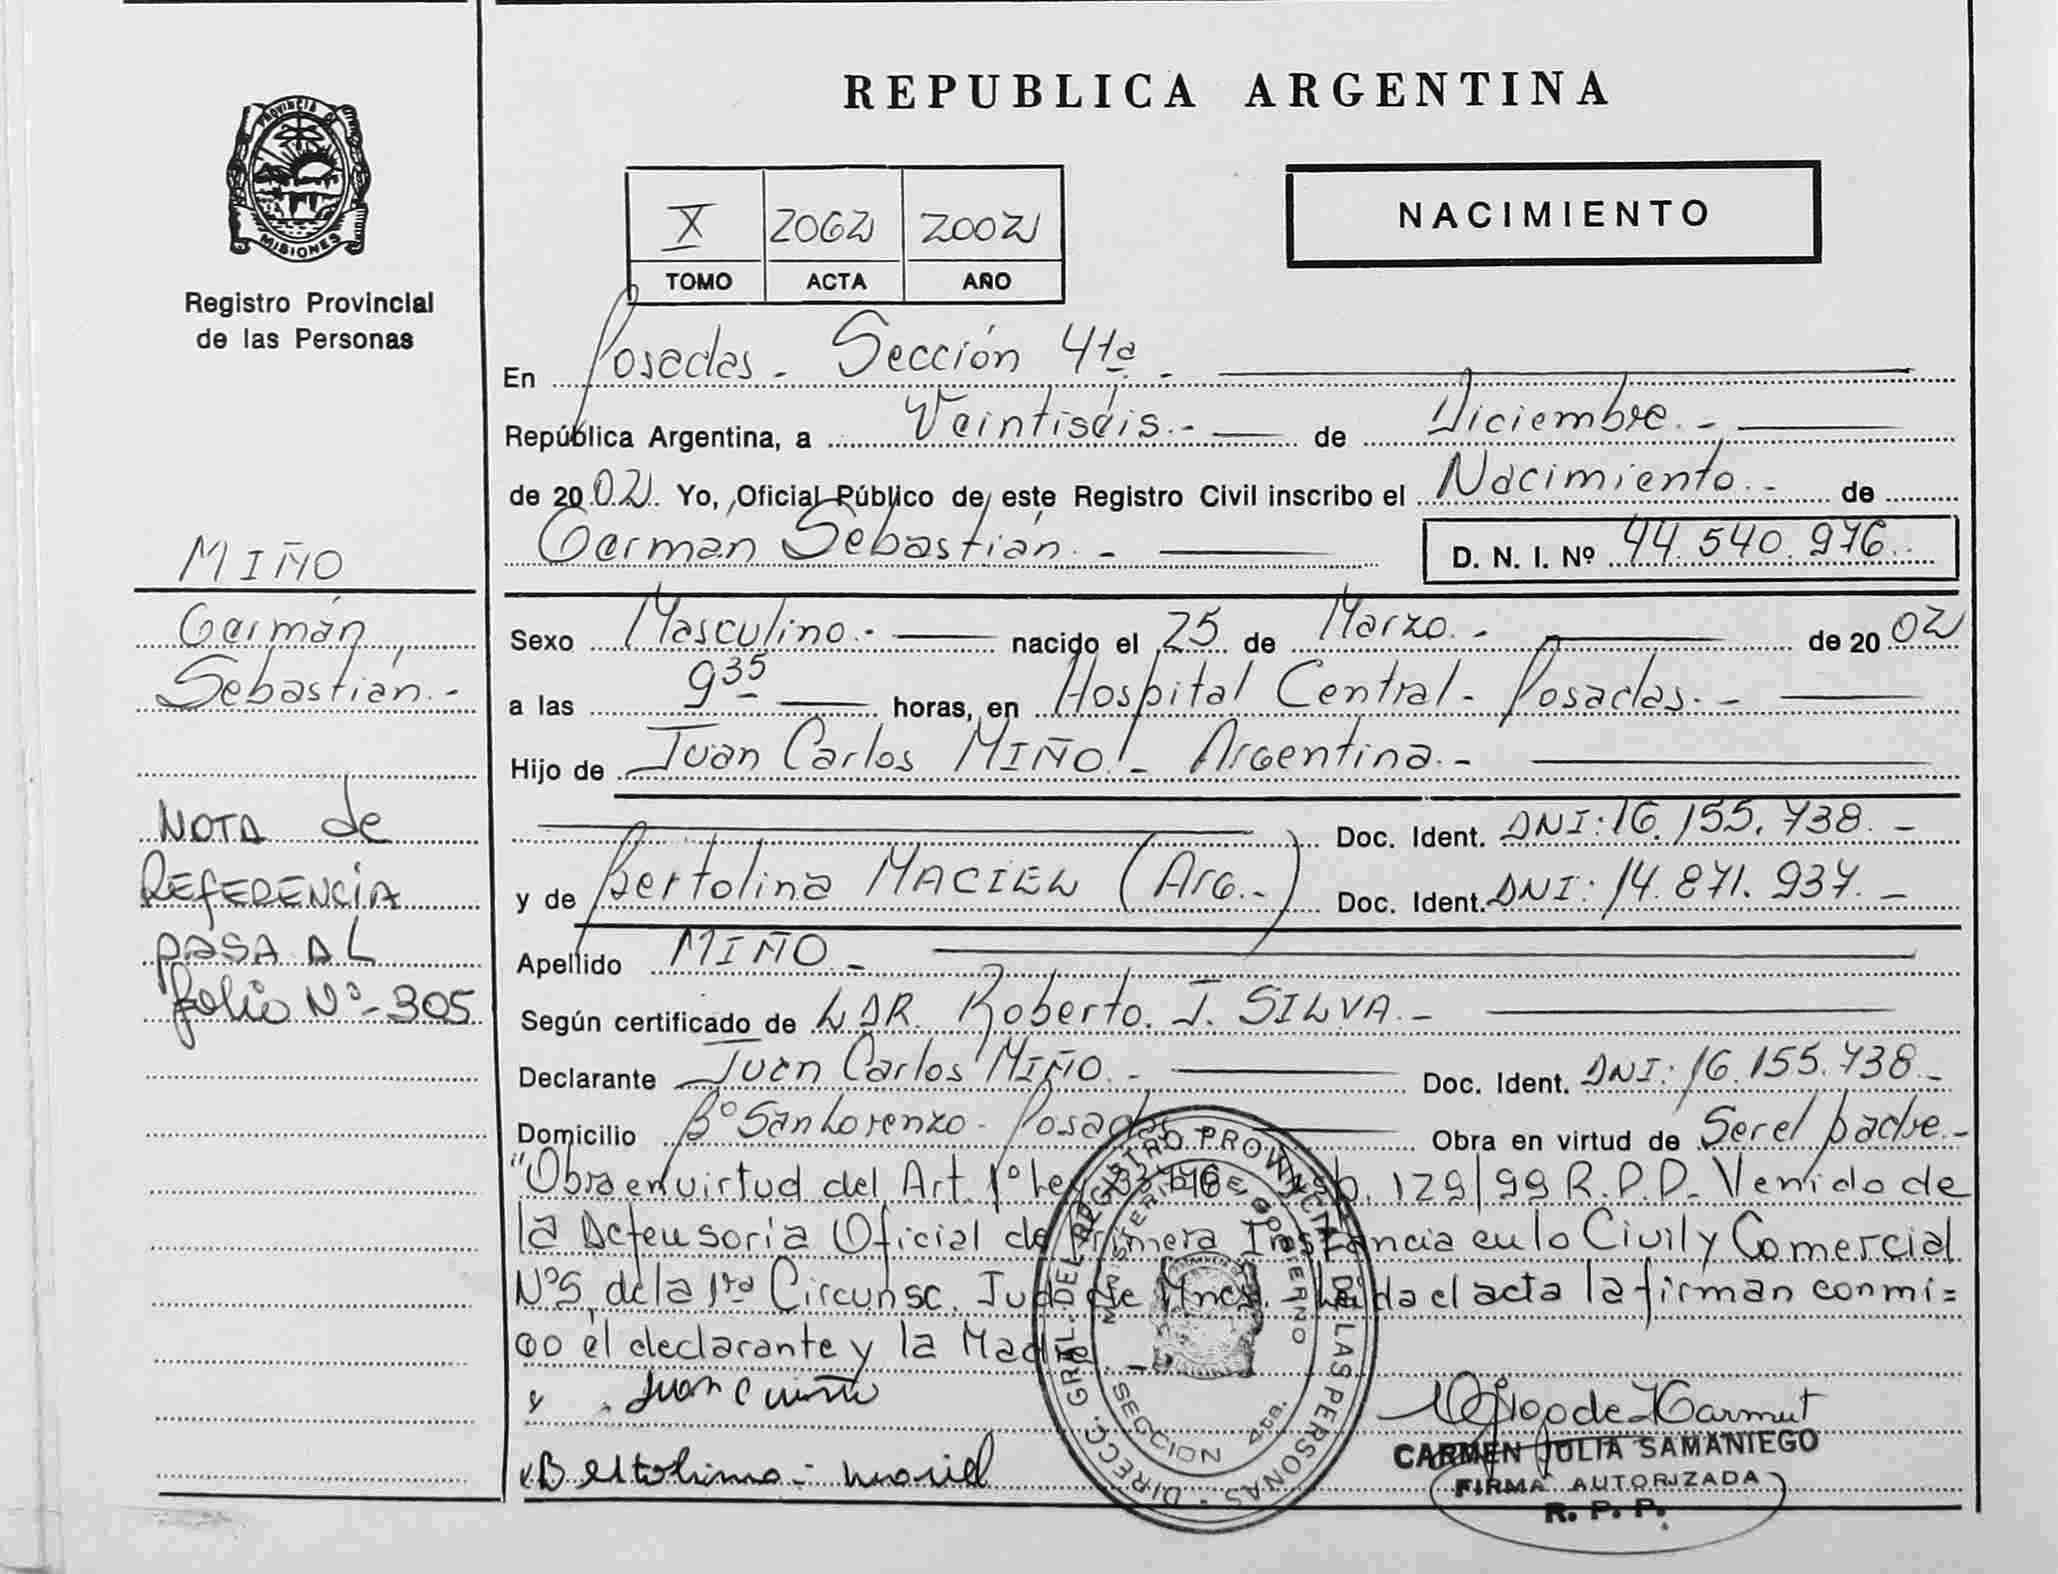 REPUBLICA ARGENTINA
PROVINCIA DE
MISIONES
Registro Provincial
de las Personas
X 2062 2002
TOMO ACTA AÑO
NACIMIENTO
En Posadas - Sección 4ta. -
República Argentina, a Veintiséis. - de Diciembre. -
de 2002. Yo, Oficial Público de este Registro Civil inscribo el Nacimiento. - de
Germán Sebastián. - D. N. I. Nº 44.540.976.
Sexo Masculino. - nacido el 25 de Marzo. - de 2002
a las 9 35 horas, en Hospital Central - Posadas. -
Hijo de Juan Carlos MIÑO - Argentina. -
Doc. Ident. DNI: 16.155.738. -
y de Bertolina MACIEL (Arg. -) Doc. Ident. DNI: 14.871.937. -
Apellido MIÑO -
Según certificado de LDR. Roberto. J. SILVA. -
Declarante Juan Carlos MIÑO. - Doc. Ident. DNI: 16.155.738. -
Domicilio Bº San Lorenzo - Posadas Obra en virtud de Ser el padre. -
"Obra en virtud del Art. 1º 129/99 R.P.P. Venido de
la Defensoría Oficial de Primera Instancia en lo Civil y Comercial
Nº5 de la 1ra Circunsc. Jud. de Mnes. - Leída el acta la firman conmi=
go el declarante y la Madre -
Juan C Miño
Bertolina - maciel
MIÑO
Germán
Sebastián. -
NOTA de
REFERENCIA
PASA AL
folio Nº - 305
DIRECC. GRAL. DEL REGISTRO PROVINCIAL DE LAS PERSONAS
MINISTERIO DE GOBIERNO
SECCION 4ta.
CARMEN JULIA SAMANIEGO
FIRMA AUTORIZADA
R. P. P.